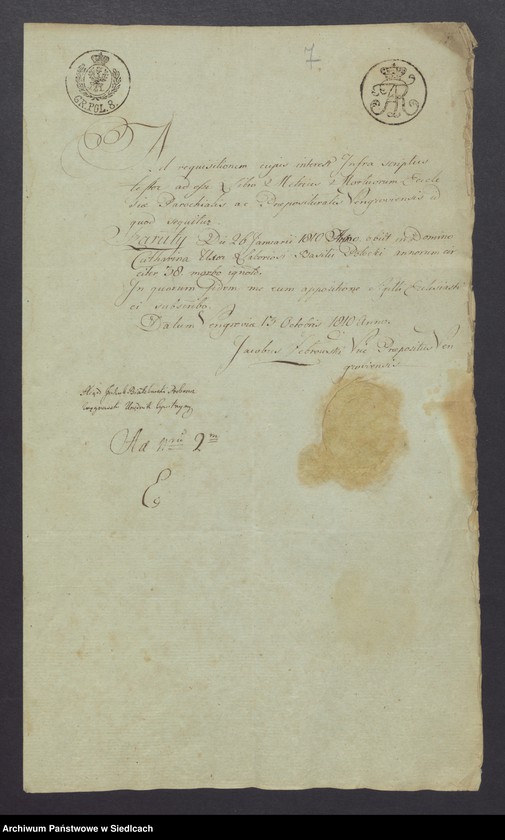 7.
GR.POL.8
Ad requisitionem cujus interest Infra scriptus
testor ad esse Libro Metrices Mortuorum Eccle
siae Parochialis ac Praepositoralis Vengroviensis id
quod sequitur
Zaruty Die 26 Januarii 1810 Anno, obiit in Domino
Catharina Uxor Laboriosi Basilii annorum cir
citer 38 morbo ignoto.
In quorum Fidem me cum appositione Sigilli Ecclesiasti
ci subscribo.
Datum Vengroviae 13 Octobris 1810 Anno.
Jacobus Vice Praepositus Ven
groviensis
Ad 2
Archiwum Państwowe w Siedlcach